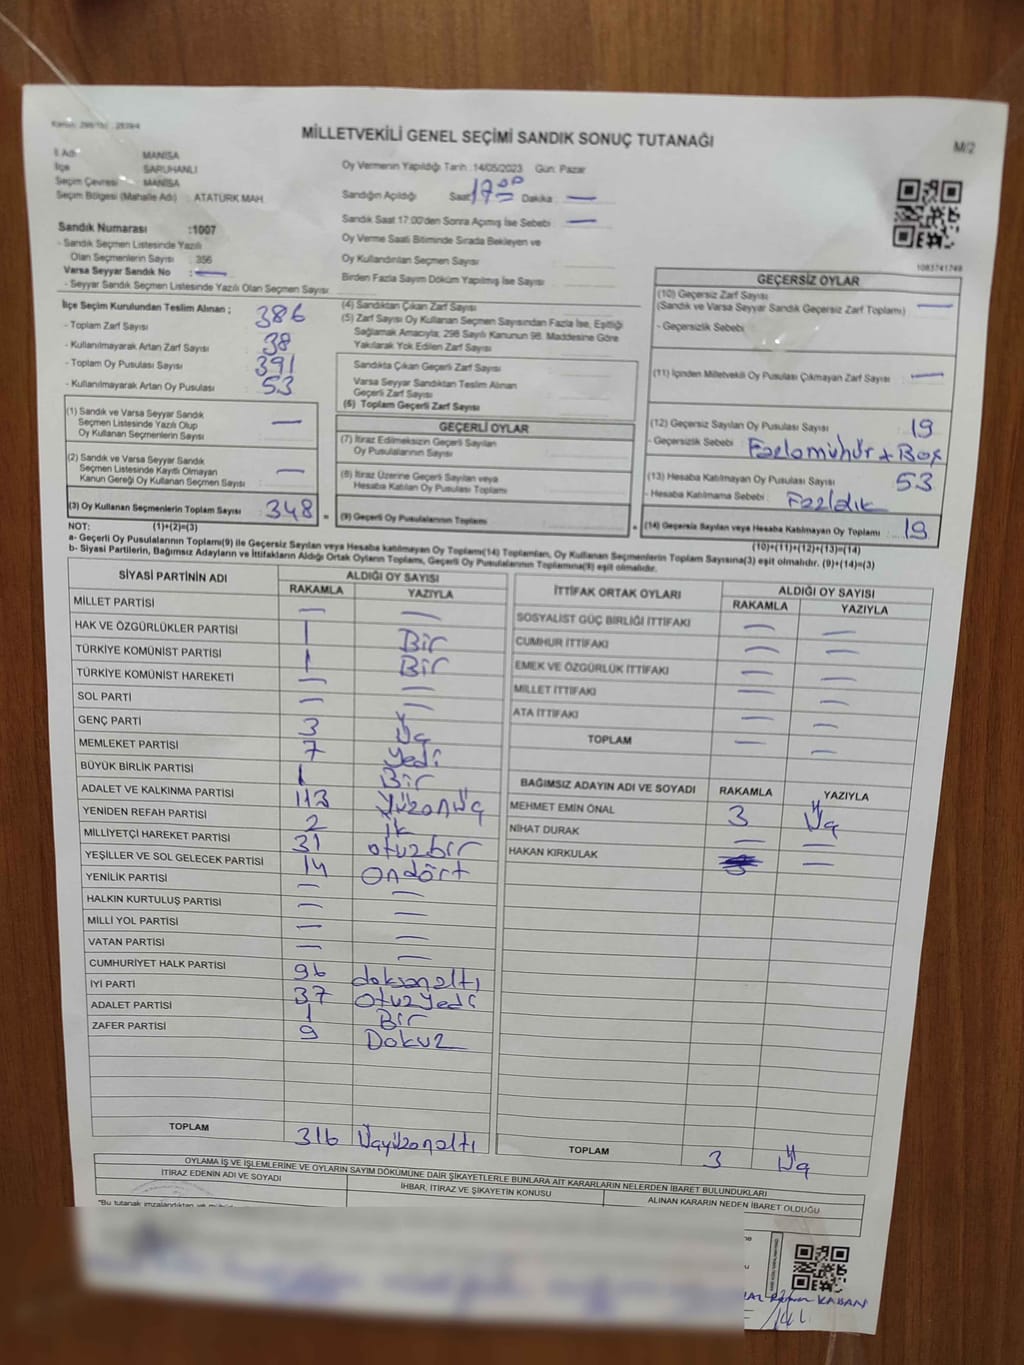 MİLLETVEKİLİ GENEL SEÇİMİ SANDIK SONUÇ TUTANAĞI
M/2
İl Adı MANİSA
İlçe SARUHANLI
Seçim Çevresi MANİSA
Seçim Bölgesi (Mahalle Adı) : ATATÜRK MAH.
Sandık Numarası :1007
- Sandık Seçmen Listesinde Yazılı
Olan Seçmenlerin Sayısı : 356
Varsa Seyyar Sandık No : —
- Seyyar Sandık Seçmen Listesinde Yazılı Olan Seçmen Sayısı:
Oy Vermenin Yapıldığı Tarih :14/05/2023 Gün: Pazar
Sandığın Açıldığı Saat 17:00 Dakika : —
Sandık Saat 17:00'den Sonra Açımış İse Sebebi : —
Oy Verme Saati Bitiminde Sırada Bekleyen ve
Oy Kullandırılan Seçmen Sayısı
Birden Fazla Sayım Döküm Yapılmış İse Sayısı
1083741749
İlçe Seçim Kurulundan Teslim Alınan ;
- Toplam Zarf Sayısı 386
- Kullanılmayarak Artan Zarf Sayısı 38
- Toplam Oy Pusulası Sayısı 391
- Kullanılmayarak Artan Oy Pusulası 53
(1) Sandık ve Varsa Seyyar Sandık
Seçmen Listesinde Yazılı Olup
Oy Kullanan Seçmenlerin Sayısı —
(2) Sandık ve Varsa Seyyar Sandık
Seçmen Listesinde Kayıtlı Olmayan
Kanun Gereği Oy Kullanan Seçmen Sayısı —
(3) Oy Kullanan Seçmenlerin Toplam Sayısı 348 =
(4) Sandıktan Çıkan Zarf Sayısı
(5) Zarf Sayısı Oy Kullanan Seçmen Sayısından Fazla İse, Eşitliği
Sağlamak Amacıyla; 298 Sayılı Kanunun 98. Maddesine Göre
Yakılarak Yok Edilen Zarf Sayısı
Sandıkta Çıkan Geçerli Zarf Sayısı
Varsa Seyyar Sandıktan Teslim Alınan
Geçerli Zarf Sayısı
(6) Toplam Geçerli Zarf Sayısı
GEÇERLİ OYLAR
(7) İtiraz Edilmeksizin Geçerli Sayılan
Oy Pusulalarının Sayısı
(8) İtiraz Üzerine Geçerli Sayılan veya
Hesaba Katılan Oy Pusulası Toplamı
(9) Geçerli Oy Pusulalarının Toplamı +
GEÇERSİZ OYLAR
(10) Geçersiz Zarf Sayısı
(Sandık ve Varsa Seyyar Sandık Geçersiz Zarf Toplamı) —
- Geçersizlik Sebebi
(11) İçinden Milletvekili Oy Pusulası Çıkmayan Zarf Sayısı —
(12) Geçersiz Sayılan Oy Pusulası Sayısı 19
- Geçersizlik Sebebi :
(13) Hesaba Katılmayan Oy Pusulası Sayısı 53
- Hesaba Katılmama Sebebi : Fazlalık
(14) Geçersiz Sayılan veya Hesaba Katılmayan Oy Toplamı : 19
NOT: (1)+(2)=(3) (10)+(11)+(12)+(13)=(14)
a- Geçerli Oy Pusulalarının Toplamı(9) ile Geçersiz Sayılan veya Hesaba katılmayan Oy Toplamı(14) Toplamları, Oy Kullanan Seçmenlerin Toplam Sayısına(3) eşit olmalıdır. (9)+(14)=(3)
b- Siyasi Partilerin, Bağımsız Adayların ve İttifakların Aldığı Ortak Oyların Toplamı, Geçerli Oy Pusulalarının Toplamına(9) eşit olmalıdır.
SİYASİ PARTİNİN ADI ALDIĞI OY SAYISI
RAKAMLA YAZIYLA
MİLLET PARTİSİ — —
HAK VE ÖZGÜRLÜKLER PARTİSİ 1 Bir
TÜRKİYE KOMÜNİST PARTİSİ 1 Bir
TÜRKİYE KOMÜNİST HAREKETİ — —
SOL PARTİ — —
GENÇ PARTİ 3 Üç
MEMLEKET PARTİSİ 7 Yedi
BÜYÜK BİRLİK PARTİSİ 1 Bir
ADALET VE KALKINMA PARTİSİ 113 Yüzonüç
YENİDEN REFAH PARTİSİ 2 ik
MİLLİYETÇİ HAREKET PARTİSİ 31 otuzbir
YEŞİLLER VE SOL GELECEK PARTİSİ 14 ondört
YENİLİK PARTİSİ — —
HALKIN KURTULUŞ PARTİSİ — —
MİLLİ YOL PARTİSİ — —
VATAN PARTİSİ — —
CUMHURİYET HALK PARTİSİ 96 doksanaltı
İYİ PARTİ 37 otuzyedi
ADALET PARTİSİ 1 Bir
ZAFER PARTİSİ 9 Dokuz
TOPLAM 316 Üçyüzonaltı
İTTİFAK ORTAK OYLARI ALDIĞI OY SAYISI
RAKAMLA YAZIYLA
SOSYALİST GÜÇ BİRLİĞİ İTTİFAKI — —
CUMHUR İTTİFAKI — —
EMEK VE ÖZGÜRLÜK İTTİFAKI — —
MİLLET İTTİFAKI — —
ATA İTTİFAKI — —
TOPLAM — —
BAĞIMSIZ ADAYIN ADI VE SOYADI RAKAMLA YAZIYLA
MEHMET EMİN ÖNAL 3 Üç
NİHAT DURAK — —
HAKAN KIRKULAK —
TOPLAM 3 Üç
OYLAMA İŞ VE İŞLEMLERİNE VE OYLARIN SAYIM DÖKÜMÜNE DAİR ŞİKAYETLERLE BUNLARA AİT KARARLARIN NELERDEN İBARET BULUNDUKLARI
İTİRAZ EDENİN ADI VE SOYADI İHBAR, İTİRAZ VE ŞİKAYETİN KONUSU ALINAN KARARIN NEDEN İBARET OLDUĞU
"Bu tutanak imzalandıktan ve
KABAN